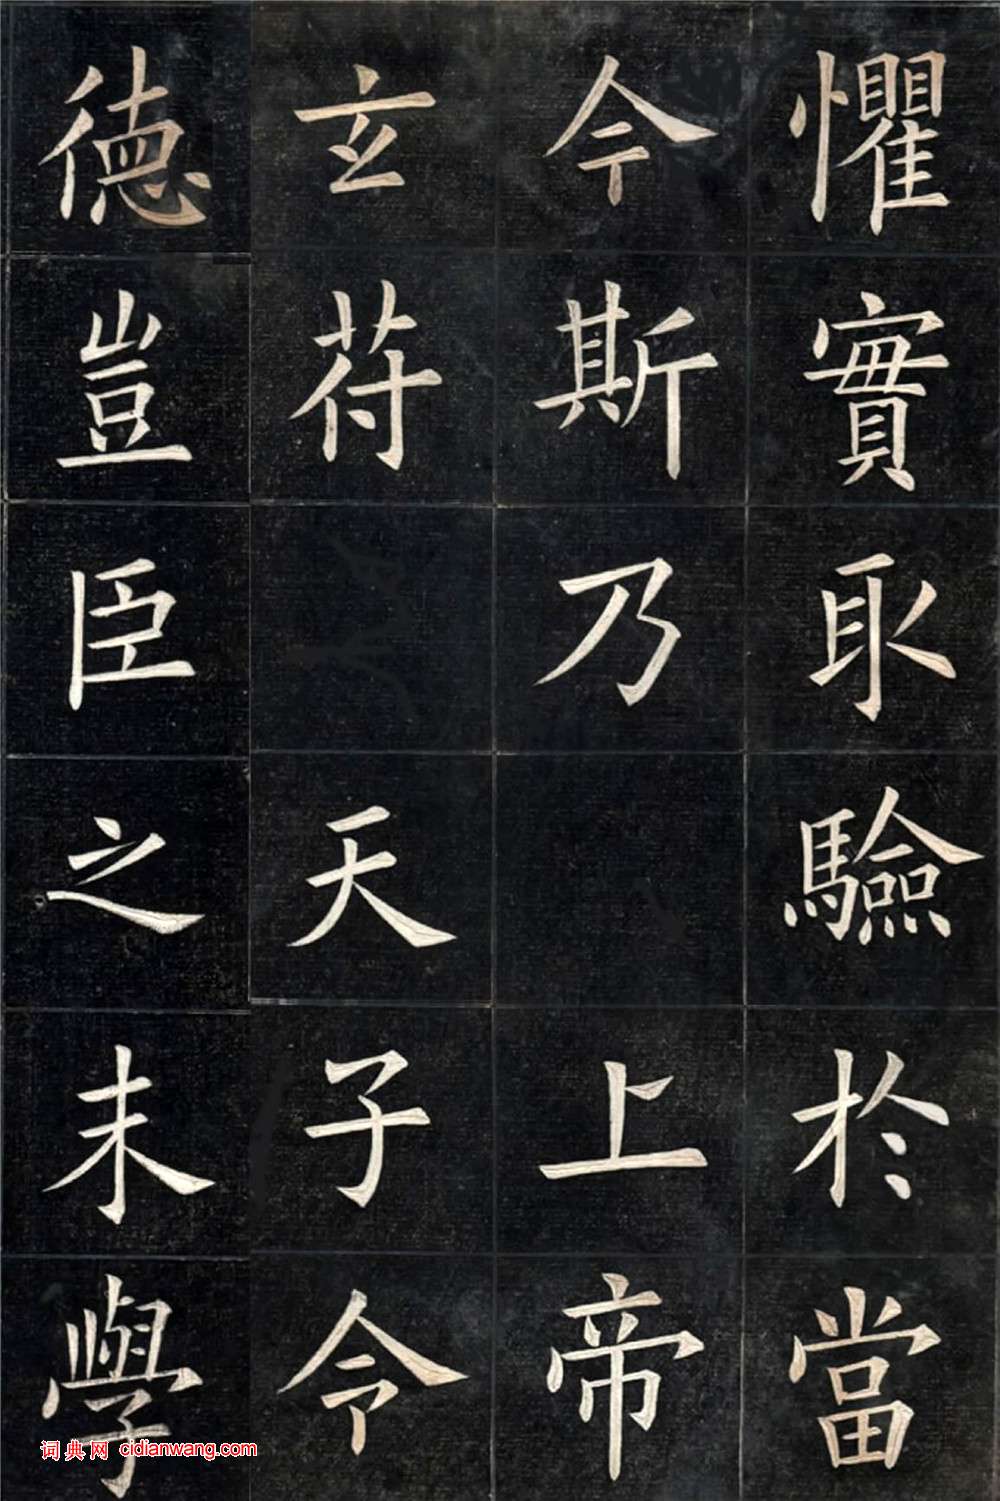 懼實取驗於當
今斯乃上帝
玄苻天子令
德豈臣之末學
词典网 cidianwang.com